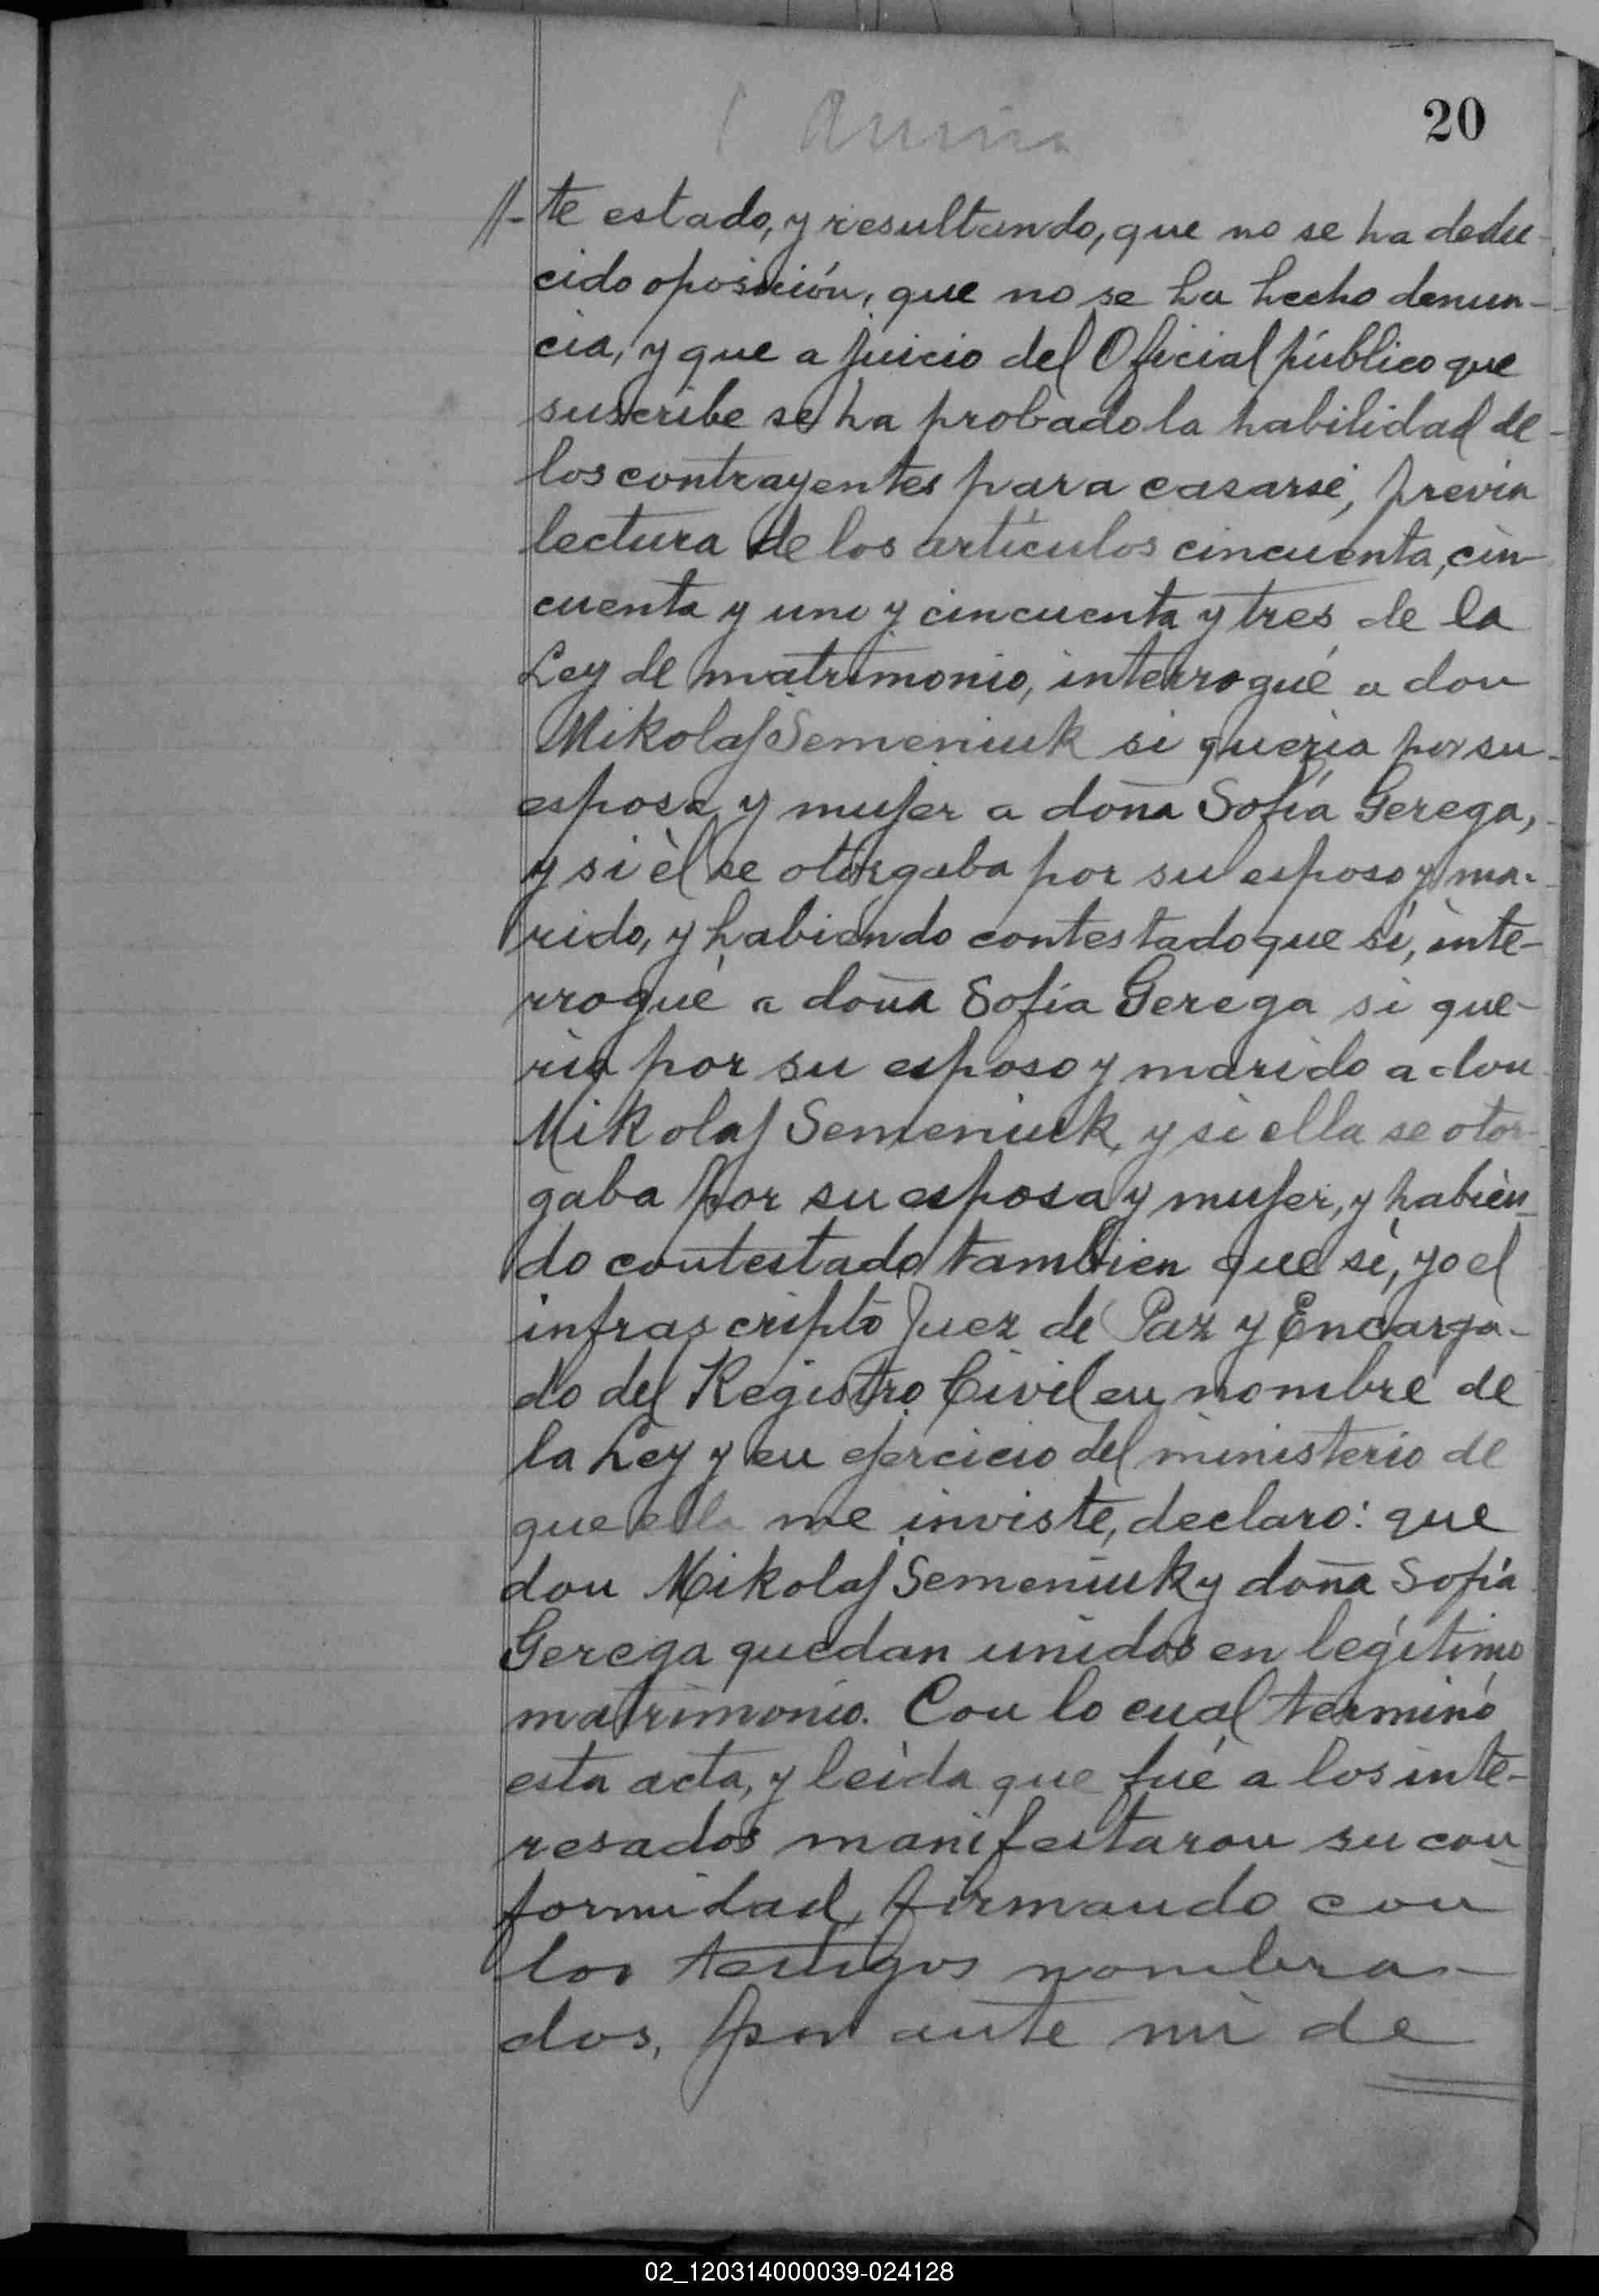 20
//-te estado, y resultando, que no se ha dedu-
cido oposición, que no se ha hecho denun-
cia, y que a juicio del Oficial público que
suscribe se ha probado la habilidad de
los contrayentes para casarse, previa
lectura de los artículos cincuenta, cin-
cuenta y uno y cincuenta y tres de la
Ley de matrimonio, interrogué a don
Mikolaj Semeniuk si quería por su
esposa y mujer a doña Sofía Gerega,
y si él se otorgaba por su esposo y ma-
rido, y habiendo contestado que sí, inte-
rrogué a doña Sofía Gerega si que-
ría por su esposo y marido a don
Mikolaj Semeniuk, y si ella se otor-
gaba por su esposa y mujer, y habien-
do contestado tambien que sí, yo el
infrascripto Juez de Paz y Encarga-
do del Registro Civil en nombre de
la Ley y en ejercicio del ministerio de
que ella me inviste, declaro: que
don Mikolaj Semeniuk y doña Sofía
Gerega quedan unidos en legítimo
matrimonio. Con lo cual terminó
esta acta, y leída que fué a los inte-
resados manifestaron su con-
formidad, firmando con
los testigos nombra-
dos, por ante mí de
02_120314000039-024128